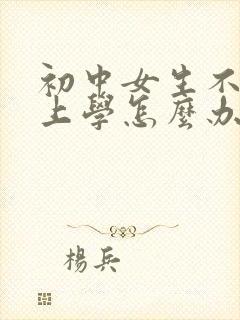 初中女生不
上學怎麼办
楊兵